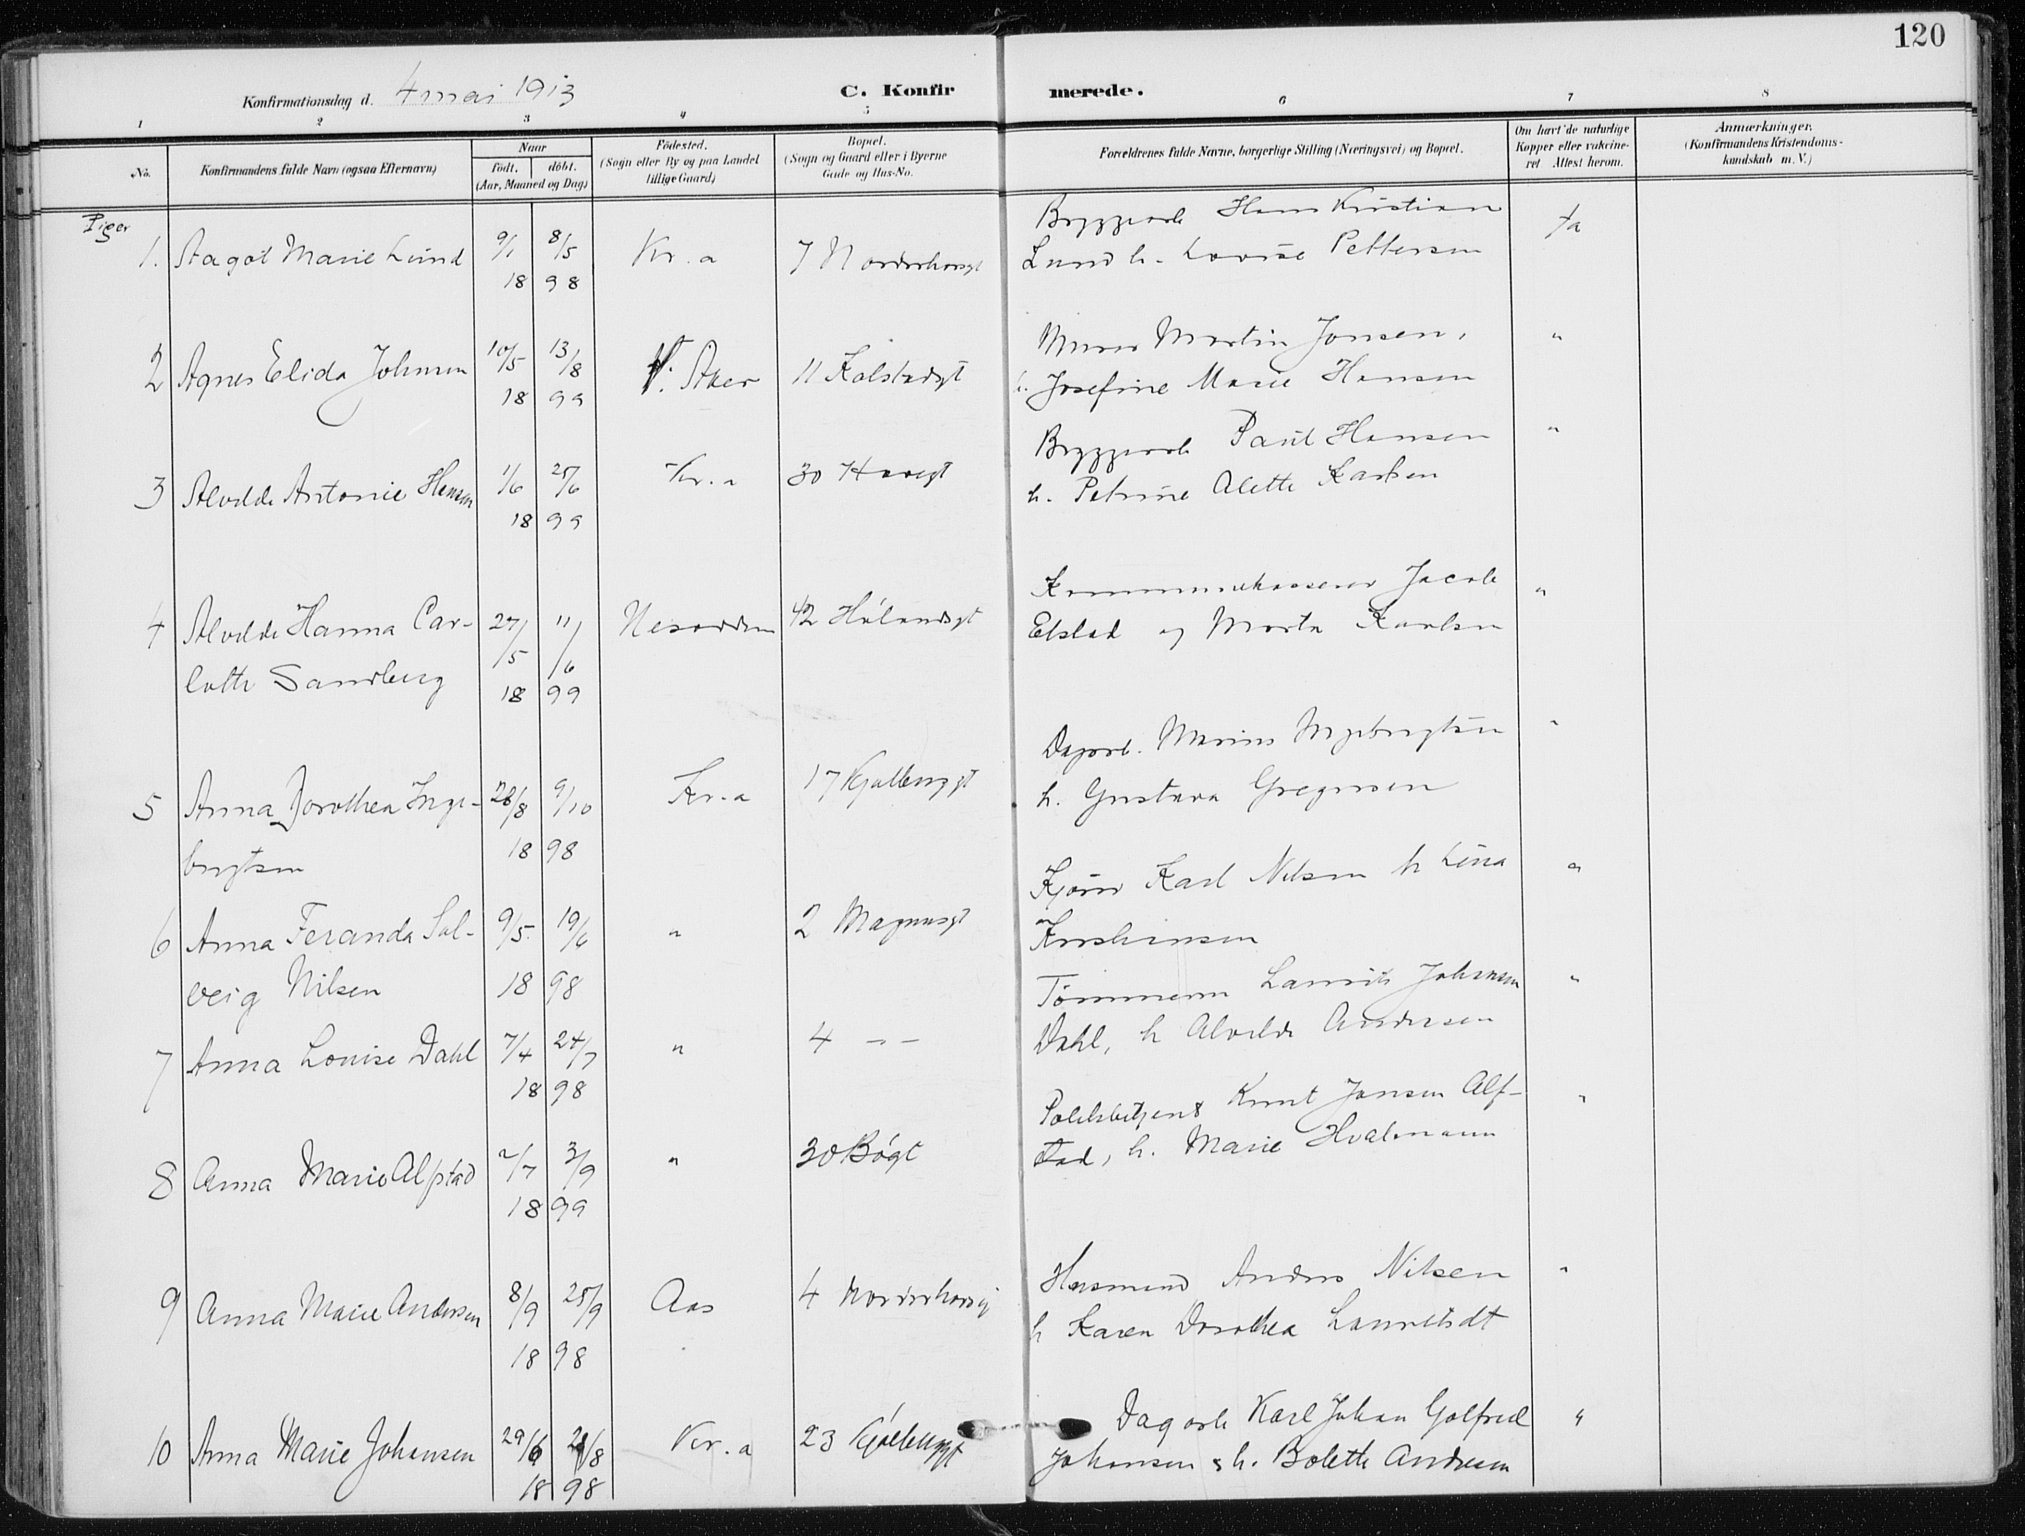 120
Konfirmationsdag d. 4 mai 1913
C. Konfirmerede.
1 2 3 4 5 6 7 8
No.
Konfirmandens fulde Navn (ogsaa Efternavn)
Naar
födt. döbt.
(Aar, Maaned og Dag)
Födested.
(Sogn eller By og paa Landet
tillige Gaard)
Bopæl.
(Sogn og Gaard eller i Byerne
Gade og Hus-No.
Forældrenes fulde Navne, borgerlige Stilling (Næringsvei) og Bopæl.
Om havt de naturlige
Kopper eller vakcine-
ret Attest herom.
Anmærkninger.
(Konfirmandens Kristendoms-
kundskab m. V.)
Piger
1. Aagot Marie Lund 9/1 8/5 18 98 Kr.a 7 Norderhovgt
Bryggearb Hans Kristian
Lund h. Lovise Pettersen
Ja
2 Agnes Elida Johnsen 10/5 13/8 18 99 V. Aker 11 Kalstadgt
Murer Martin Jonsen,
h. Josefine Marie Hansen
"
3 Alvilde Antonie Hansen 1/6 25/6 18 99 Kr.a 30
Bryggearb Paul Hansen
h. Petrine Alette Karlsen
"
4 Alvilde Hanna Car-
lotte Sandberg 27/5 11/6 18 99 Nesodden 42 Hølandsgt
Kommunekasserer Jacob
og Marta Karlsen
"
5 Anna Dorothea Inge-
brigtsen 28/8 9/10 18 98 Kr.a 17 Kjølberggt
Dagarb. Marius Ingebrigtsen
h. Gustava Gregersen
"
6 Anna Feranda Sol-
veig Nilsen 9/5 19/6 18 98 " 2 Magnusgt
Kjører Karl Nilsen h Lina
Kristiansen
"
7 Anna Louise Dahl 7/4 24/7 18 98 " 4 - -
Tømmerm Laurits Johansen
Dahl, h Alvilde Andersen
"
8 Anna Marie Alfstad 2/7 3/9 18 99 " 30 Bøgt
Politibetjent Knut Jansen Alf-
stad, h. Marie Hvalmann
"
9 Anna Marie Andersen 8/9 25/9 18 98 Aas 4 Norderhovgt
Husmand Anders Nilsen
h Karen Dorothea
"
10 Anna Marie Johansen 29/6 /8 18 98 Kr.a 23 Kjølberggt
Dagarb Karl Johan Golfred
Johansen h. Bolette Andresen
"